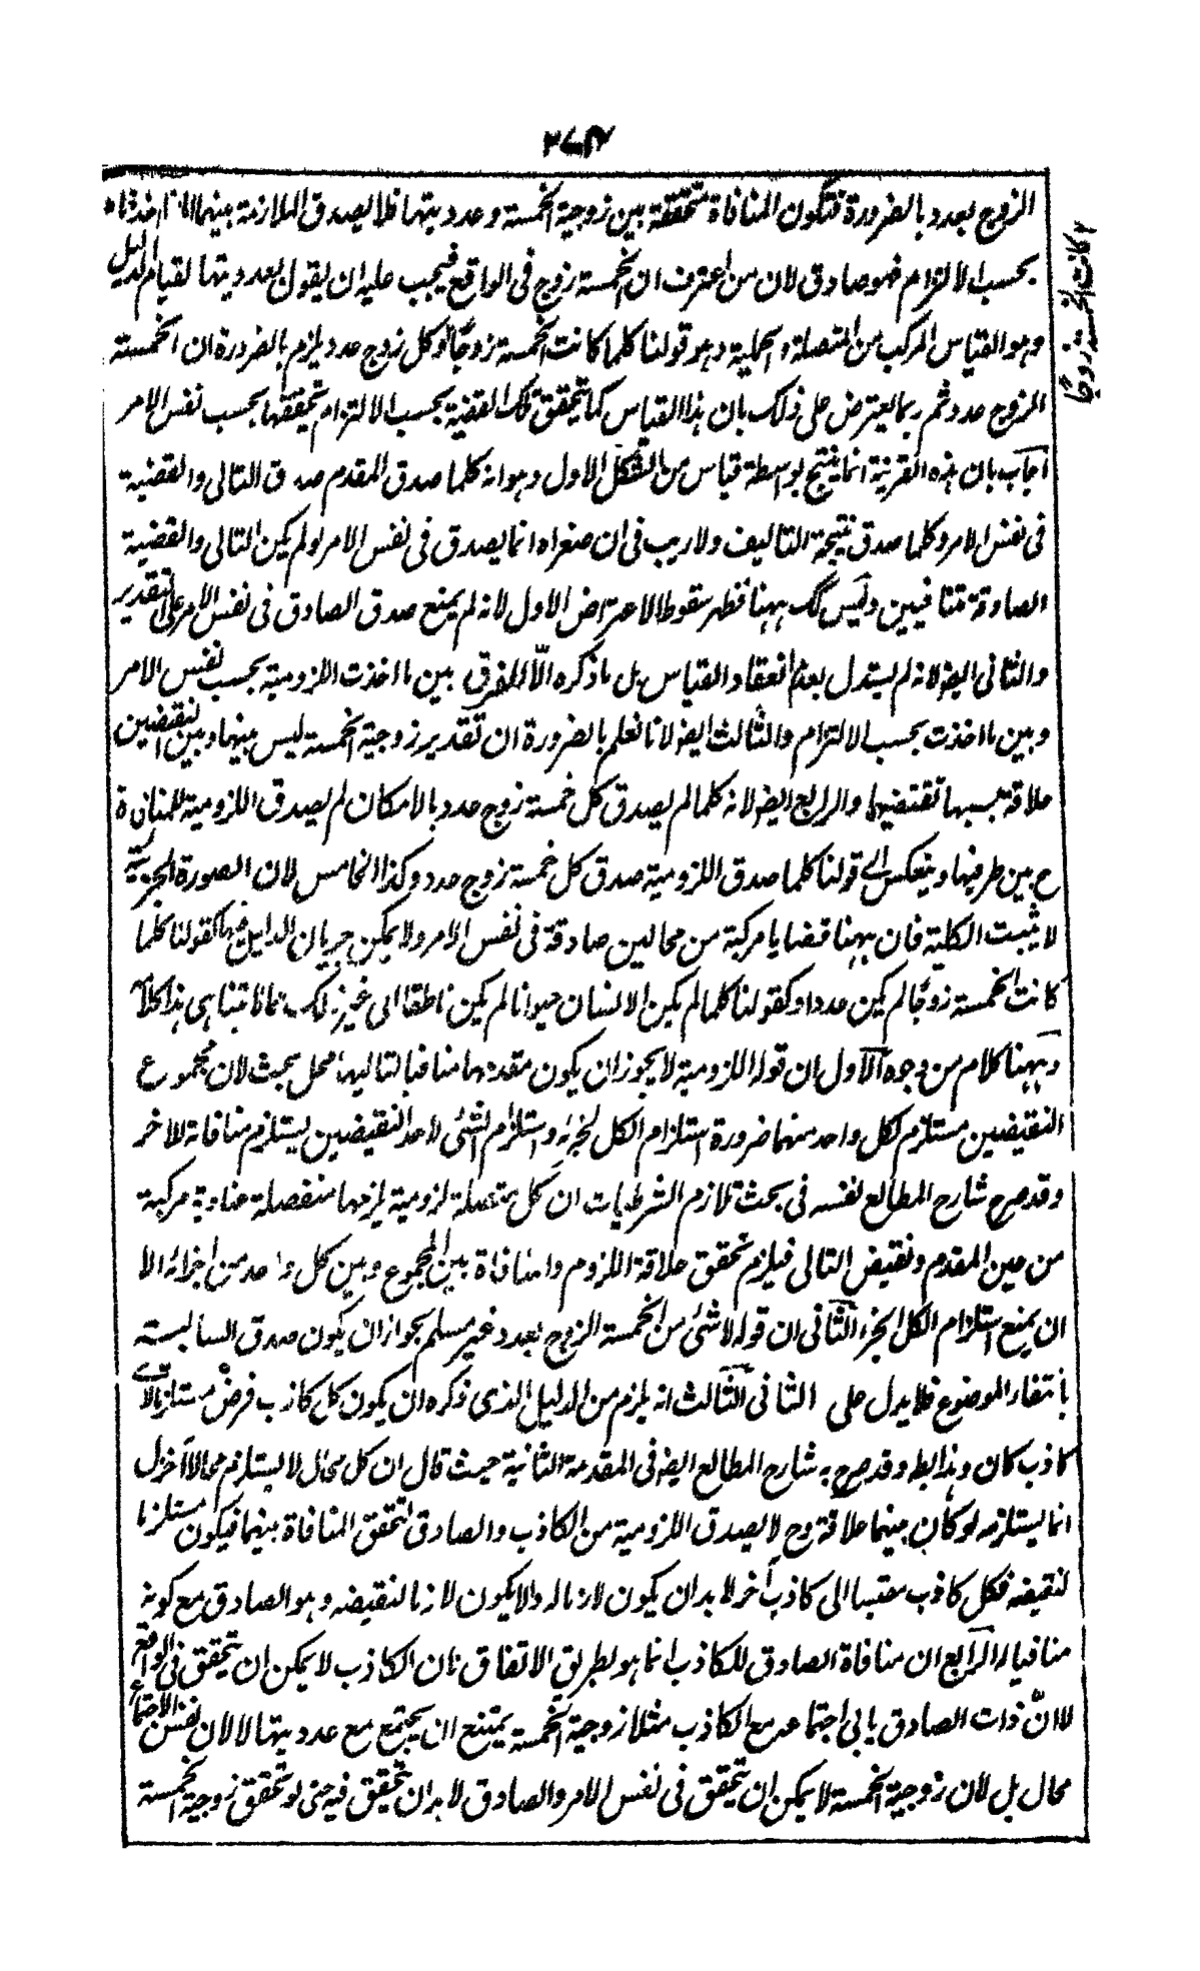 الزوج بعدد بالضرورة فتكون المنافاة متحققة بين زوجية الخمسة وعدديتها فلا يصدق الملازمة بينهما اما اذا اخذناه
بحسب الالتزام فهو صادق لان من اعترف ان الخمسة زوج فى الواقع فيجب عليه ان يقول بعدديتها لقيام الدليل
وهو القياس المركب من المتصلة والحملية وهو قولنا كلما كانت الخمسة زوجا وكل زوج عدد يلزم بالضرورة ان الخمسة
الزوج عدد ثم ربما يعترض على ذلك بان هذا القياس كما تحقق تلك القضية بحسب الالتزام تحققها بحسب نفس الامر
اجاب بان هذه القرينة انما ينتج بواسطة قياس من الشكل الاول وهو انه كلما صدق المقدم صدق التالى والقضية
فى نفس الامر وكلما صدق نتيجة التاليف ولا ريب فى ان صغراه انما يصدق فى نفس الامر لو لم يكن التالى والقضية
الصادقة متنافيين وليس كك ههنا فظهر سقوط الاعتراض الاول لانه لم يمنع صدق الصادق فى نفس الامر على التقدير
والثانى ايضا لانه لم يستدل بعدم انعقاد القياس بل ما ذكره الا للفرق بين ما اخذت اللزومية بحسب نفس الامر
وبين ما اخذت بحسب الالتزام والثالث ايضا لانا نعلم بالضرورة ان تقدير زوجية الخمسة ليس بينها وبين النقيضين
علاقة بسببها تقتضيهما والرابع ايضا لانه كلما لم يصدق كل خمسة زوج عدد بالامكان لم يصدق اللزومية للمنافاة
ح بين طرفيها وينعكس الى قولنا كلما صدق اللزومية صدق كل خمسة زوج عدد وكذا الخامس لان الصورة الجزئية
لا يثبت الكلية فان ههنا قضايا مركبة من محالين صادقة فى نفس الامر ولا يمكن جريان الدليل فيها كقولنا كلما
كانت الخمسة زوجا لم يكن عددا وكقولنا كلما لم يكن الانسان حيوانا لم يكن ناطقا الى غير ذلك مما لا يتناهى هذا كلامه
وههنا كلام من وجوه الاول ان قوله اللزومية لا يجوز ان يكون مقدمها منافيا لتاليها محل بحث لان مجموع
النقيضين مستلزم لكل واحد منهما ضرورة استلزام الكل لجزئه واستلزام الشئ لاحد النقيضين يستلزم منافاته للاخر
وقد صرح شارح المطالع نفسه فى بحث تلازم الشرطيات ان كل متصلة لزومية يلزمها منفصلة عنادية مركبة
من عين المقدم ونقيض التالى فيلزم تحقق علاقة اللزوم والمنافاة بين المجموع وبين كل واحد من اجزائه الا
ان يمنع استلزام الكل الجزء الثانى ان قوله لا شئ من الخمسة الزوج بعدد غير مسلم بجواز ان يكون صدق السالبة
بانتفاء الموضوع فلا يدل على الثانى الثالث انه يلزم من الدليل الذى ذكره ان يكون كل كاذب فرض مستلزما لاى
كاذب كان وهذا باطل وقد صرح به شارح المطالع ايضا فى المقدمة الثانية حيث قال ان كل محال لا يستلزم محالا آخر بل
انما يستلزمه لو كان بينهما علاقة وح لا يصدق اللزومية من الكاذب والصادق لتحقق المنافاة بينهما فيكون مستلزما
لنقيضه فكل كاذب مقيسا الى كاذب آخر لا بد ان يكون لازما له والا يكون لازما لنقيضه وهو الصادق مع كونه
منافيا له الرابع ان منافاة الصادق للكاذب انما هو بطريق الاتفاق فان الكاذب لا يمكن ان يتحقق فى الواقع
لا ان ذات الصادق يابى اجتماعه مع الكاذب مثلا زوجية الخمسة يمتنع ان يجتمع مع عدديتها لا لان نفس الاجتماع
محال بل لان زوجية الخمسة لا يمكن ان يتحقق فى نفس الامر والصادق لا بد ان يتحقق فيه حتى لو تحقق زوجية الخمسة
كانت الخمسة زوجا